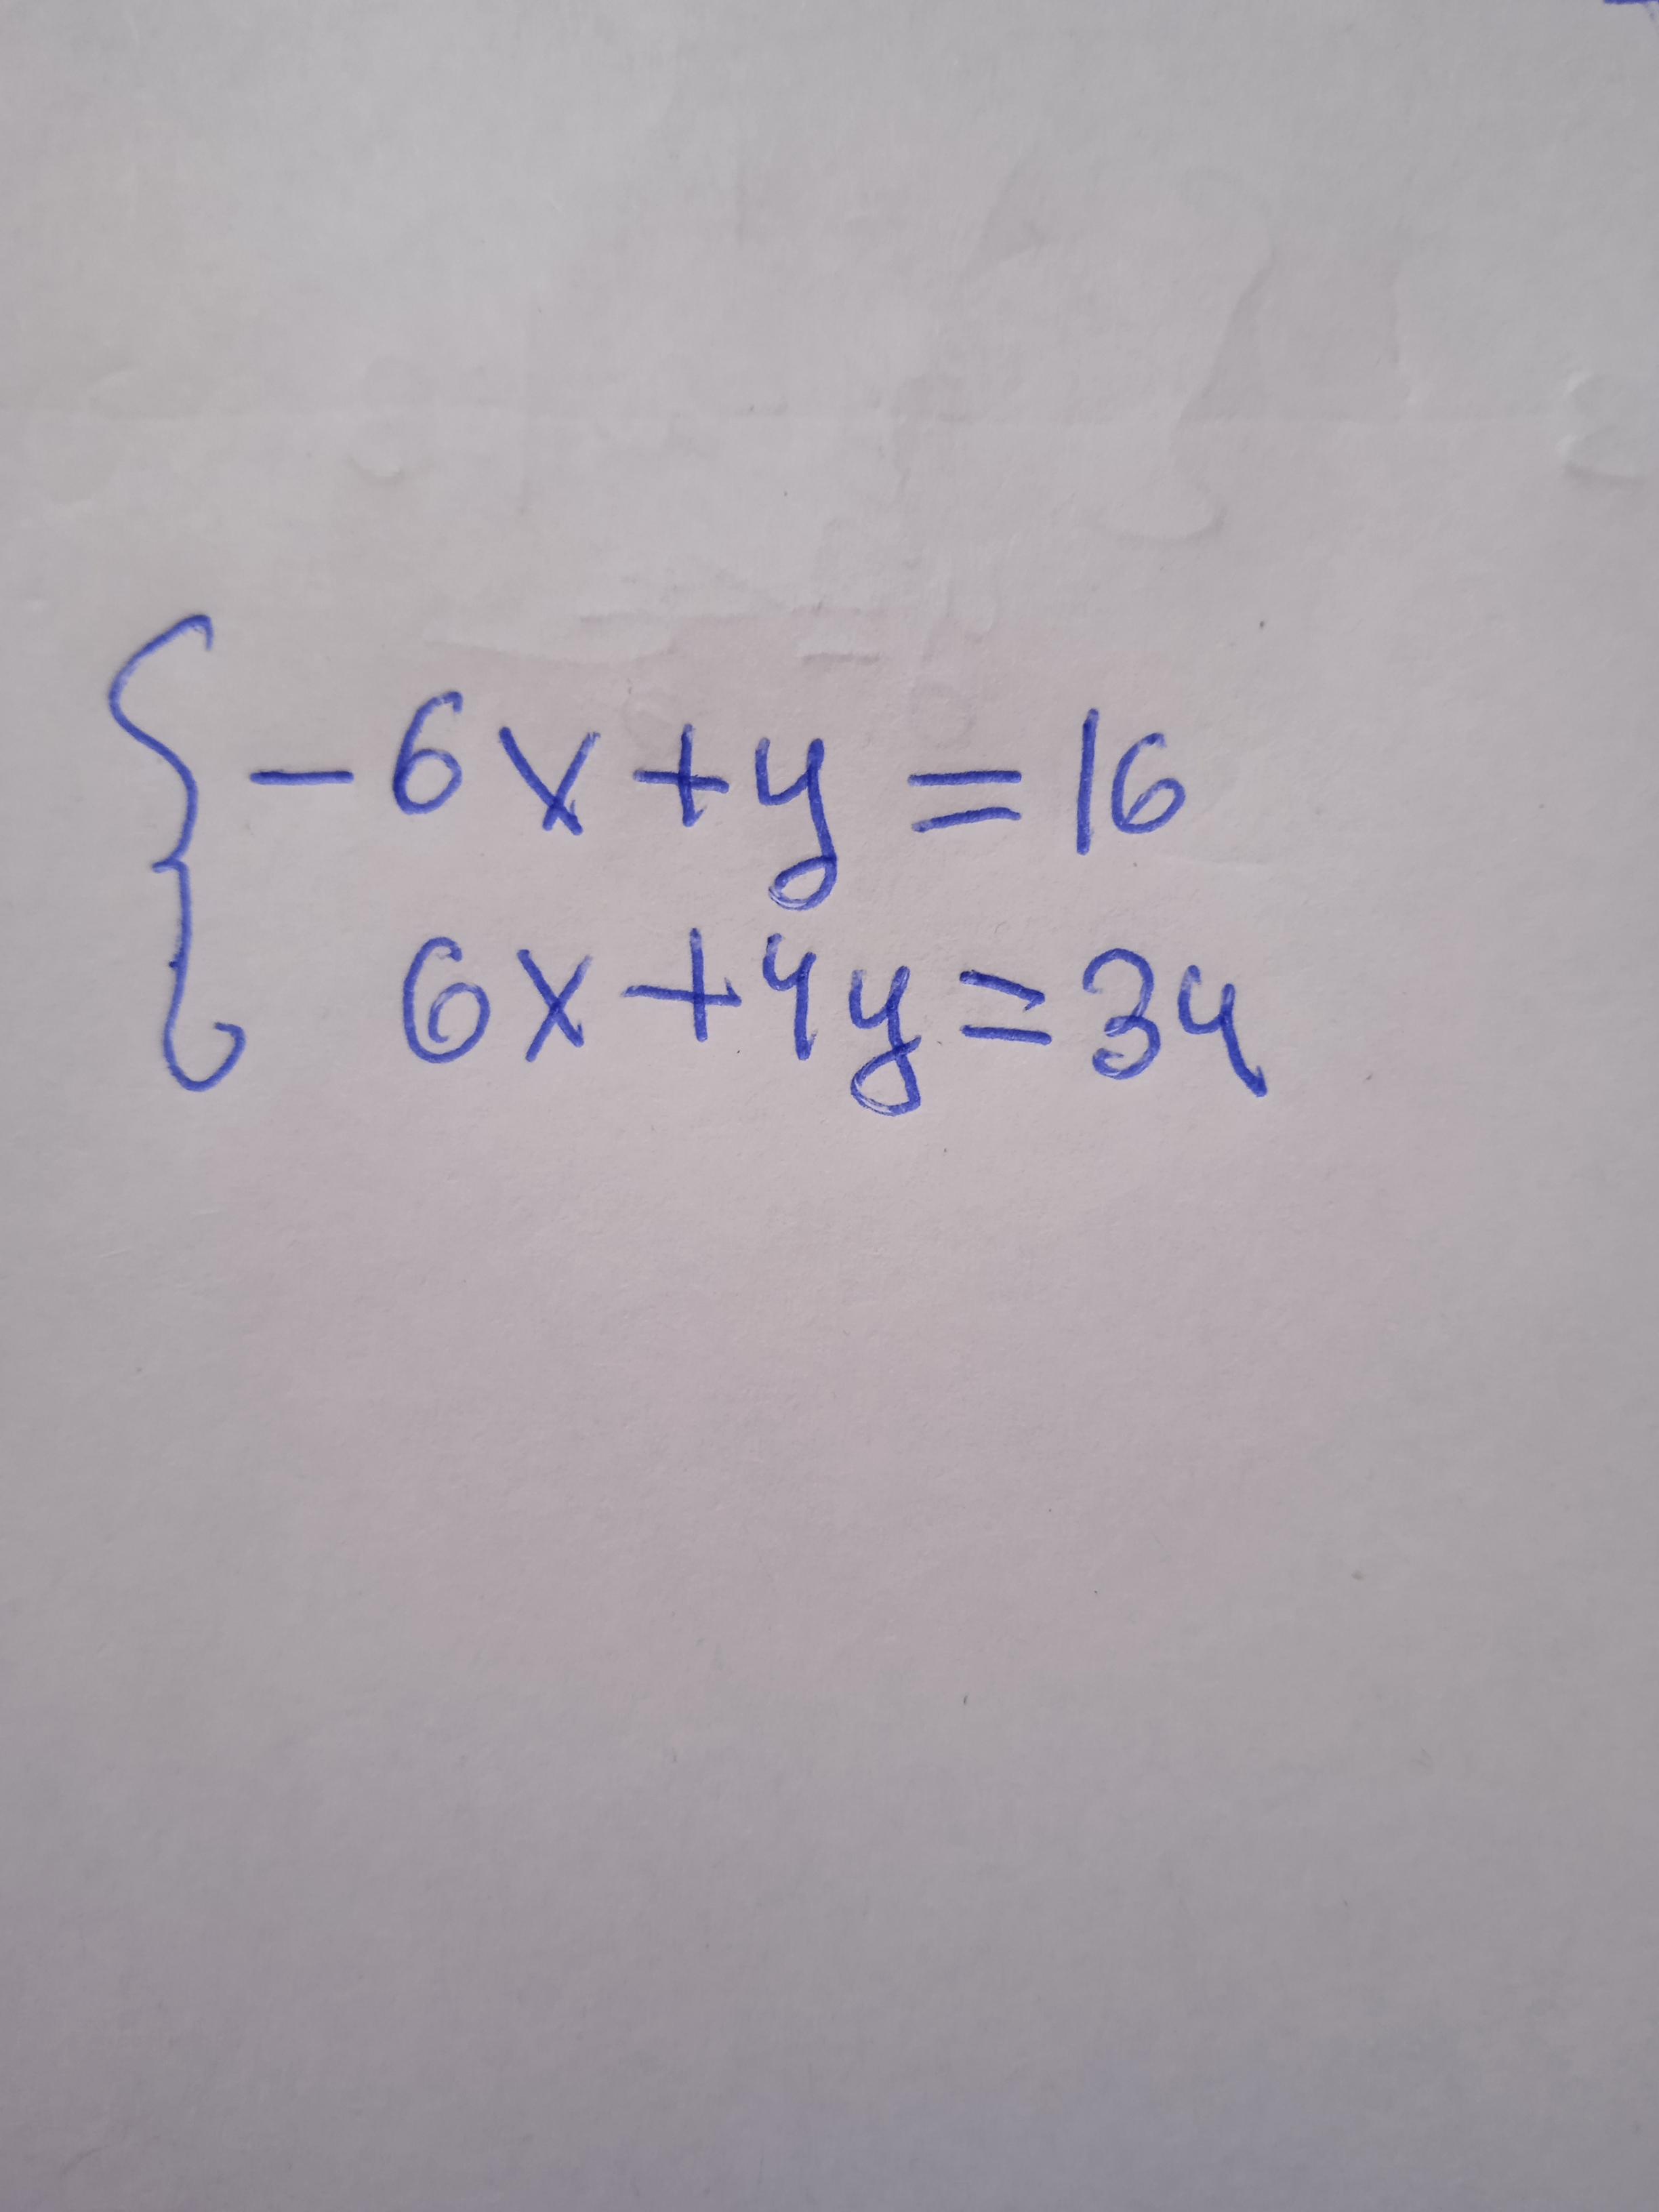 -6x+y=16
6x+4y=34